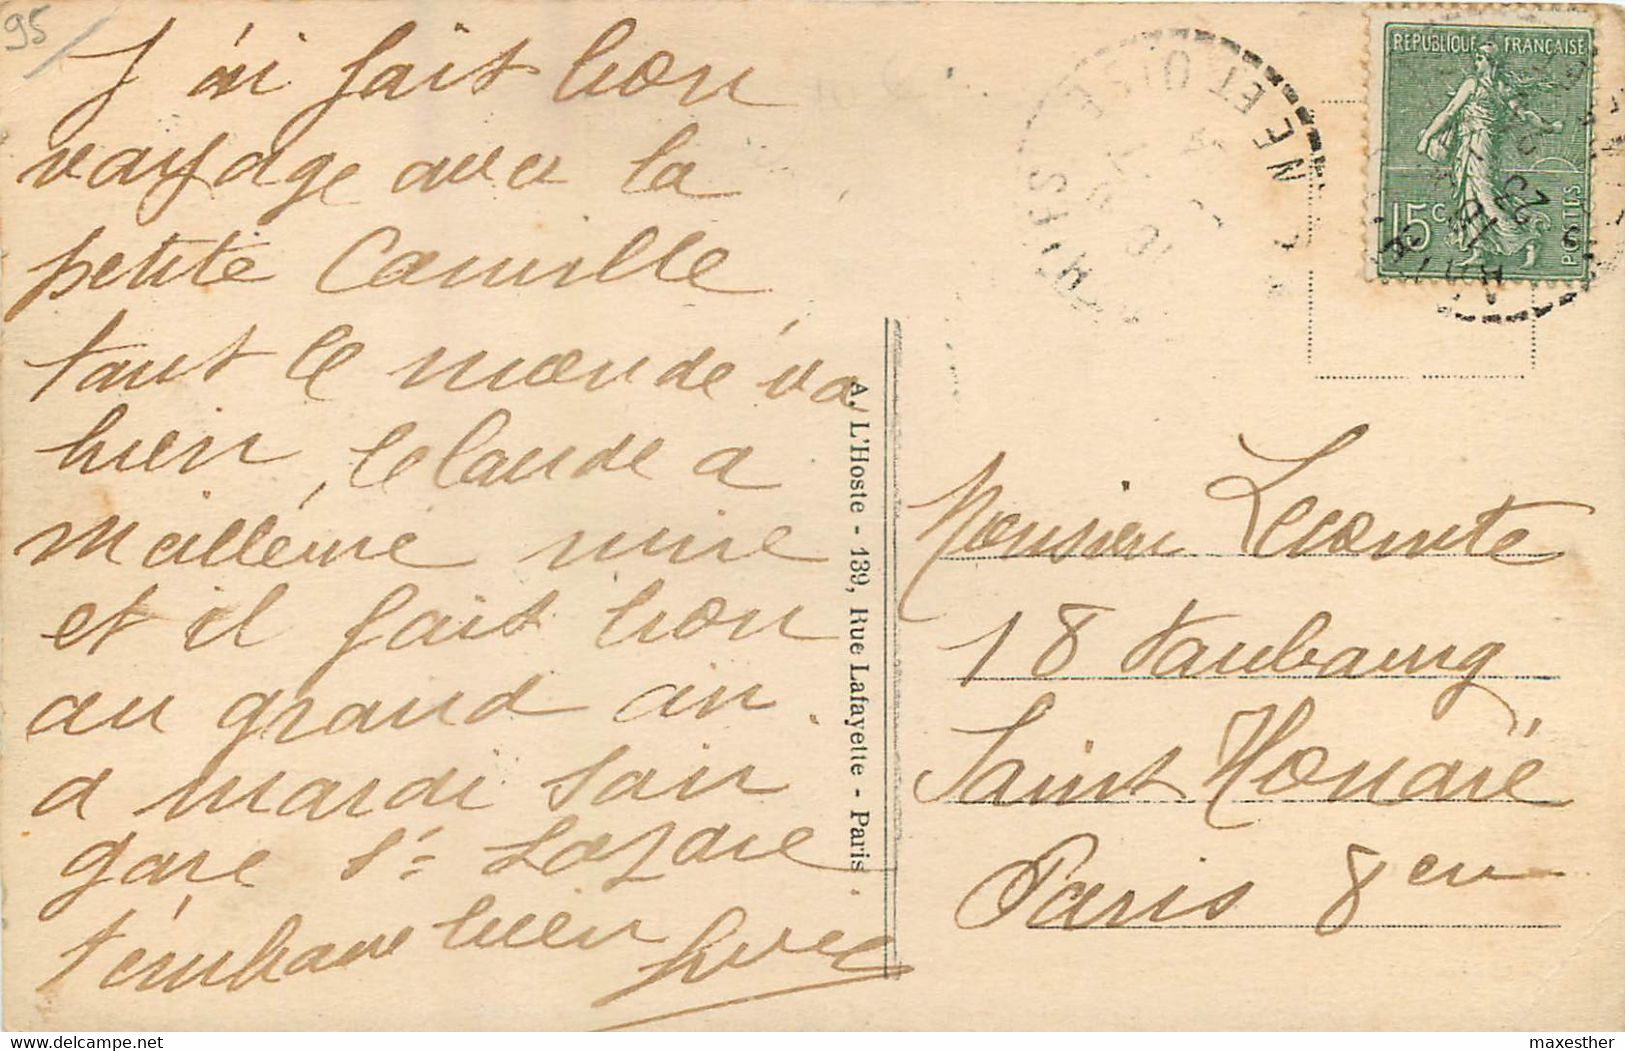 95
J'ai fait bon
voyage avec la
petite Camille
tout le monde va
bien, le Claude a
meilleure mine
et il fait bon
au grand air.
a mardi soir
gare St Lazare
t'embrasse bien
A. L'Hoste - 139, Rue Lafayette - Paris.
SEINE ET OISE
REPUBLIQUE FRANÇAISE
15c
POSTES
Monsieur Lecomte
18 Faubourg
Saint Honoré
Paris 8em
maxesther